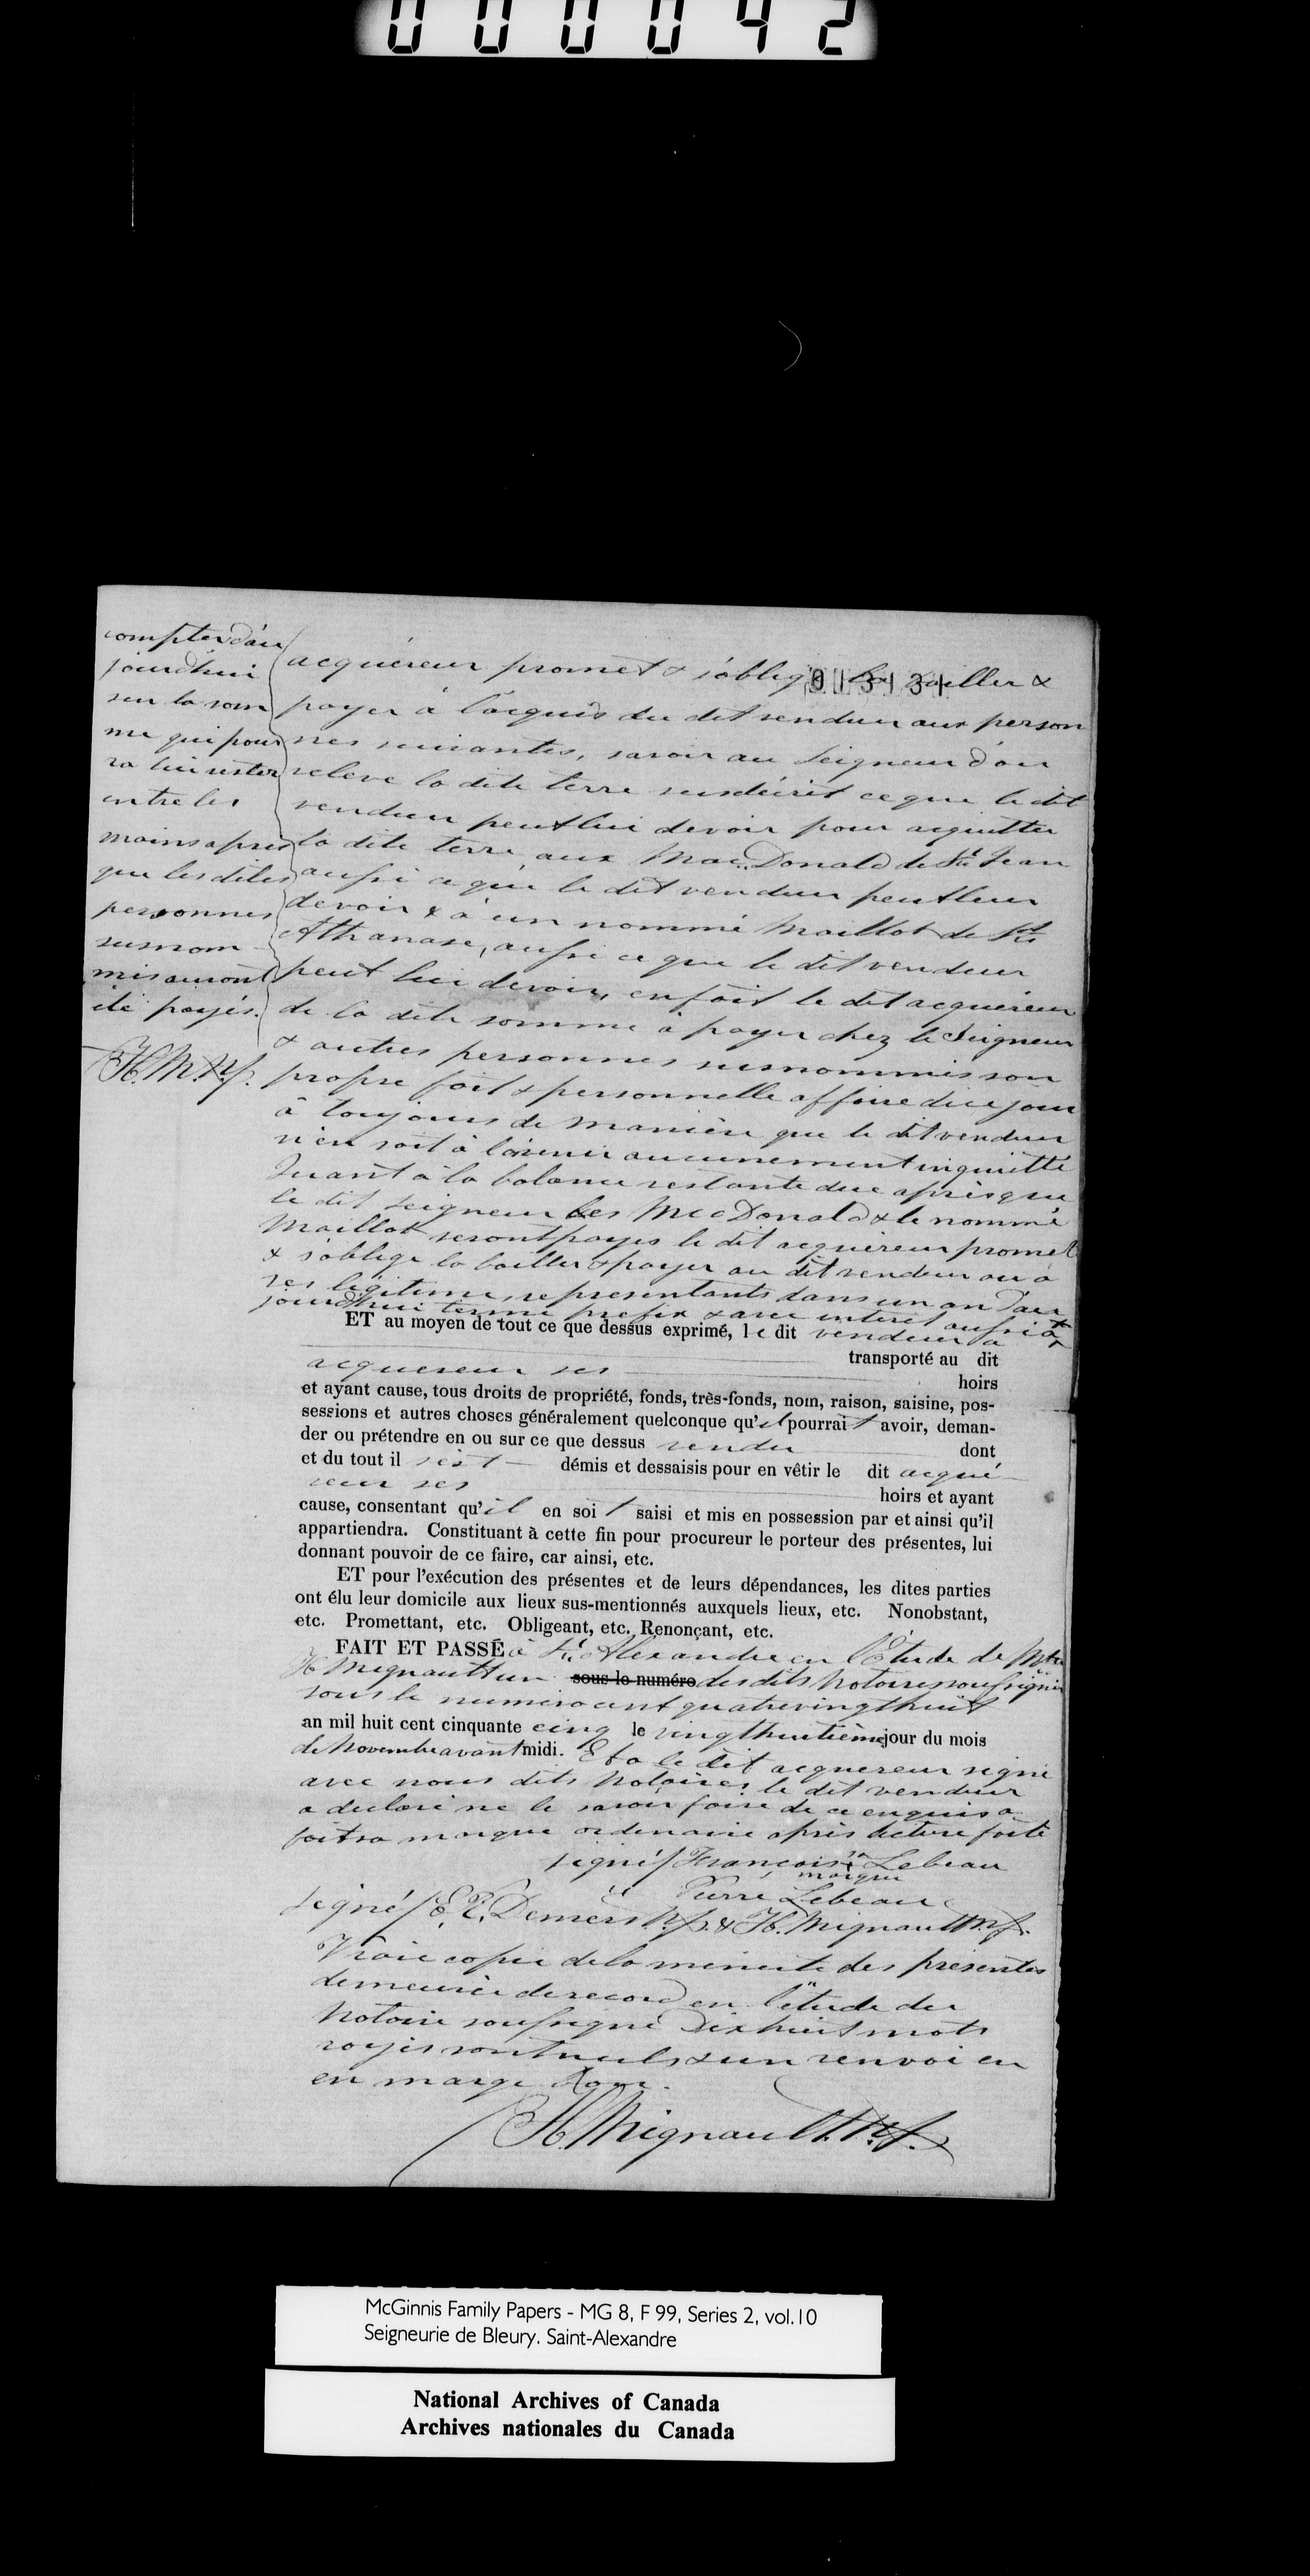 000042
compter d'au
jourd'hui
sur la som
me qui pour
ra lui rester
entre les
mains apres
que les dites
personnes
susnom
mes auront
été payés.
H. M. N.P.
013131
acquéreur promet & s'oblige la bailler &
payer à l'acquis du dit vendeur aux person
nes suivantes, savoir au Seigneur d'ou
releve la dite terre susdécrit ce que le dit
vendeur peut lui devoir pour acquitter
la dite terre, aux MacDonald de St. Jean
aussi ce que le dit vendeur peut leur
devoir & à un nommé Maillot de St
Athanase, aussi ce que le dit vendeur
peut lui devoir, en fait le dit acquéreur
de la dite somme à payer chez le Seigneur
& autres personnes susnommés son
propre fait & personnelle affaire de ce jour
à toujours de manière que le dit vendeur
n'en soit à l'avenir aucunement inquiétté
Quant à la balance restante due après que
le dit Seigneur les MacDonald & le nommé
Maillot seront payés le dit acquéreur promet
& s'oblige la bailler & payer au dit vendeur ou à
ses légitimes representants dans un an d'au
jourd'hui terme prefix & avec interet aussi à
ET au moyen de tout ce que dessus exprimé, le dit vendeur a
transporté au dit
acquereur ses hoirs
et ayant cause, tous droits de propriété, fonds, très-fonds, nom, raison, saisine, pos-
sessions et autres choses généralement quelconque qu'il pourrait avoir, deman-
der ou prétendre en ou sur ce que dessus vendu dont
et du tout il s'est démis et dessaisis pour en vêtir le dit acqué
reur ses hoirs et ayant
cause, consentant qu'il en soit saisi et mis en possession par et ainsi qu'il
appartiendra. Constituant à cette fin pour procureur le porteur des présentes, lui
donnant pouvoir de ce faire, car ainsi, etc.
ET pour l'exécution des présentes et de leurs dépendances, les dites parties
ont élu leur domicile aux lieux sus-mentionnés auxquels lieux, etc. Nonobstant,
etc. Promettant, etc. Obligeant, etc. Renonçant, etc.
FAIT ET PASSÉ à St. Alexandre en l'Etude de Mtre
H Mignault un sous le numéro des dits Notaires soussignés
sous le numéro cent quatrevingthuit
an mil huit cent cinquante cinq le vingthuitième jour du mois
de Novembre avant midi. Et a le dit acquereur signé
avec nous dits Notaires, le dit vendeur
a declaré ne le savoir faire de ce enquis a
fait sa marque ordinaire après lecture faite
signé/ François sa x marque Lebeau
" Pierre Lebeau
Signé/ E. R. Demers N.P. & H. Mignault N.P.
Vraie copie de la minute des présentes
demeurée de record en l'étude du
Notaire soussigné Dix huit mots
rayés sont nuls & un renvoi en
en marge bon.
H. Mignault N.P.
McGinnis Family Papers - MG 8, F 99, Series 2, vol.10
Seigneurie de Bleury. Saint-Alexandre
National Archives of Canada
Archives nationales du Canada